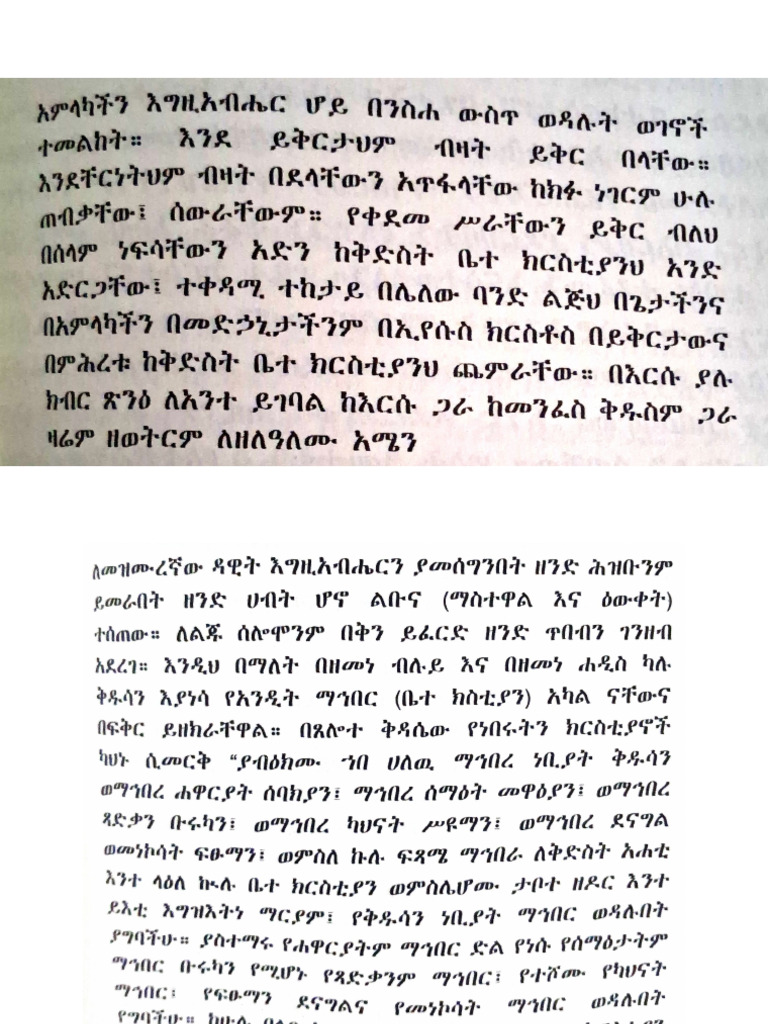 አምላካችን እግዚአብሔር ሆይ በንስሐ ውስጥ ወዳሉት ወገኖች
ተመልከት። እንደ ይቅርታህም ብዛት ይቅር በላቸው።
እንደቸርነትህም ብዛት በደላቸውን አጥፋላቸው ከክፉ ነገርም ሁሉ
ጠብቃቸው፤ ሰውራቸውም። የቀደመ ሥራቸውን ይቅር ብለህ
በሰላም ነፍሳቸውን አድን ከቅድስት ቤተ ክርስቲያንህ አንድ
አድርጋቸው፤ ተቀዳሚ ተከታይ በሌለው ባንድ ልጅህ በጌታችንና
በአምላካችን በመድኃኒታችንም በኢየሱስ ክርስቶስ በይቅርታውና
በምሕረቱ ከቅድስት ቤተ ክርስቲያንህ ጨምራቸው። በእርሱ ያሉ
ክብር ጽንዕ ለአንተ ይገባል ከእርሱ ጋራ ከመንፈስ ቅዱስም ጋራ
ዛሬም ዘወትርም ለዘለዓለሙ አሜን
ለመዝሙረኛው ዳዊት እግዚአብሔርን ያመሰግንበት ዘንድ ሕዝቡንም
ይመራበት ዘንድ ሀብት ሆኖ ልቡና (ማስተዋል እና ዕውቀት)
ተሰጠው። ለልጁ ሰሎሞንም በቅን ይፈርድ ዘንድ ጥበብን ገንዘብ
አደረገ። እንዲህ በማለት በዘመነ ብሉይ እና በዘመነ ሐዲስ ካሉ
ቅዱሳን እያነሳ የአንዲት ማኅበር (ቤተ ክስቲያን) አካል ናቸውና
በፍቅር ይዘክራቸዋል። በጸሎተ ቅዳሴው የነበሩትን ክርስቲያኖች
ካህኑ ሲመርቅ “ያብዕክሙ ኀበ ሀለዉ ማኅበረ ነቢያት ቅዱሳን
ወማኅበረ ሐዋርያት ሰባክያን፤ ማኅበረ ሰማዕት መዋዕያን፤ ወማኅበረ
ጻድቃን ቡሩካን፤ ወማኅበረ ካህናት ሥዩማን፤ ወማኅበረ ደናግል
ወመነኮሳት ፍፁማን፤ ወምስለ ኩሉ ፍጻሜ ማኅበራ ለቅድስት አሐቲ
እንተ ላዕለ ኵሉ ቤተ ክርስቲያን ወምስሌሆሙ ታቦተ ዘዶር እንተ
ይእቲ እግዝእትነ ማርያም፤ የቅዱሳን ነቢያት ማኅበር ወዳሉበት
ያግባችሁ። ያስተማሩ የሐዋርያትም ማኅበር ድል የነሱ የሰማዕታትም
ማኅበር ቡሩካን የሚሆኑ የጻድቃንም ማኅበር፤ የተሾሙ የካህናት
ማኅበር፤ የፍፁማን ደናግልና የመነኮሳት ማኅበር ወዳሉበት
የግባችሁ።